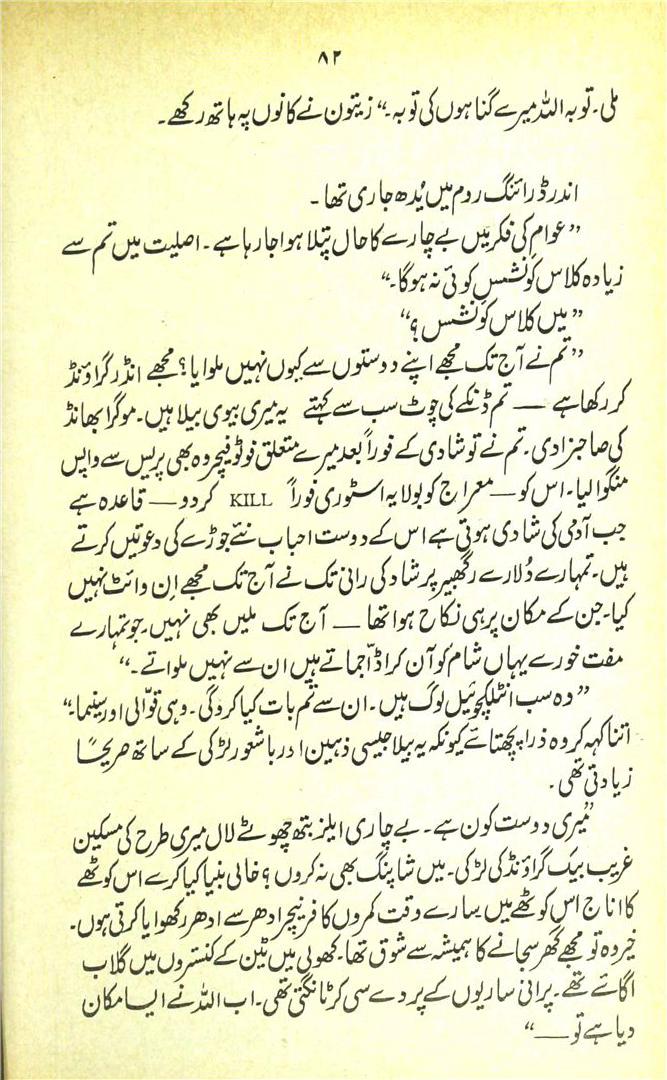 ۸۲
ملی۔ توبہ اللہ میرے گناہوں کی توبہ۔“ زیتون نے کانوں پہ ہاتھ رکھے۔
اندر ڈرائنگ روم میں یُدھ جاری تھا۔
”عوام کی فکر میں بے چارے کا حال پتلا ہوا جا رہا ہے۔ اصلیت میں تم سے
زیادہ کلاس کونشس کوئی نہ ہوگا۔“
”میں کلاس کونشس؟“
”تم نے آج تک مجھے اپنے دوستوں سے کیوں نہیں ملوایا؟ مجھے انڈر گراؤنڈ
کر رکھا ہے — تم ڈنکے کی چوٹ سب سے کہتے یہ میری بیوی بیلا ہیں۔ موگرا بھانڈ
کی صاحبزادی۔ تم نے تو شادی کے فوراً بعد میرے متعلق فوٹو فیچر وہ بھی پریس سے واپس
منگوا لیا۔ اس کو — معراج کو بولا یہ اسٹوری فوراً KILL کر دو — قاعدہ ہے
جب آدمی کی شادی ہوتی ہے اس کے دوست احباب نئے جوڑے کی دعوتیں کرتے
ہیں۔ تمہارے دُلارے رگھبیر پرشاد کی رانی تک نے آج تک مجھے اِن وائٹ نہیں
کیا۔ جن کے مکان پر ہی نکاح ہوا تھا — آج تک ملیں بھی نہیں۔ جو تمہارے
مفت خورے یہاں شام کو آن کر اڈّا جماتے ہیں ان سے نہیں ملواتے۔“
”وہ سب انٹلکچوئیل لوگ ہیں۔ ان سے تم بات کیا کرو گی۔ وہی قوّالی اور سینما۔“
اتنا کہہ کر وہ ذرا پچھتائے کیونکہ یہ بیلا جیسی ذہین اور باشعور لڑکی کے ساتھ صریحاً
زیادتی تھی۔
”میری دوست کون ہے۔ بے چاری ایلزبتھ چھوٹے لال میری طرح کی مسکین
غریب بیک گراؤنڈ کی لڑکی۔ میں شاپنگ بھی نہ کروں؟ خالی بنیا کیا کرے اس کوٹھے
کا اناج اس کوٹھے میں سارے وقت کمروں کا فرنیچر ادھر سے ادھر رکھوایا کرتی ہوں۔
خیر وہ تو مجھے گھر سجانے کا ہمیشہ سے شوق تھا۔ کھولی میں ٹین کے کنستروں میں گلاب
اگائے تھے۔ پرانی ساریوں کے پردے سی کر ٹانگتی تھی۔ اب اللہ نے ایسا مکان
دیا ہے تو —“